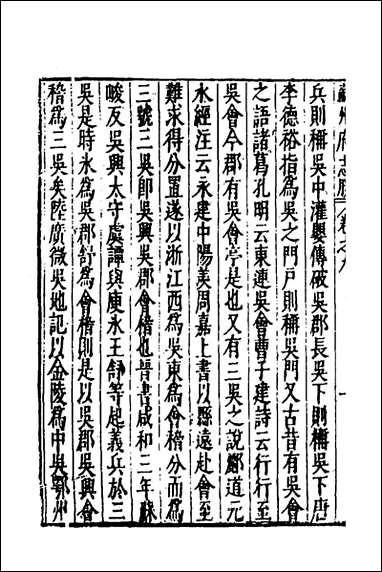 蘇州府志 卷之九
兵則稱吳中灌嬰傳破吳郡長吳下則稱吳下唐
李德裕指為吳之門戶則稱吳門又古昔有吳會
之語諸葛孔明云東連吳會曹子建詩云行行至
吳會今郡有吳會亭是也又有三吳之說酈道元
水經注云永建中陽羨周嘉上書以縣遠赴會至
難求得分置遂以浙江西為吳東為會稽分而為
三號三吳即吳興吳郡會稽也晉書咸和三年蘇
峻反吳興太守虞譚與庾氷王舒等起義兵於三
吳是時氷為吳郡舒為會稽則是以吳郡吳興會
稽為三吳矣陸廣微吳地記以金陵為中吳鄂州